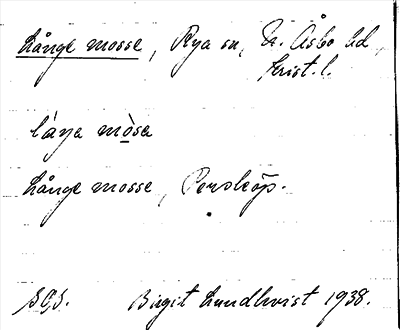 Långe mosse, Rya sn, N. Åsbo hd,
Krist. l.
låŋa mo̱sa
Långe mosse, Perstorp.
Birgit Lundkvist 1938.